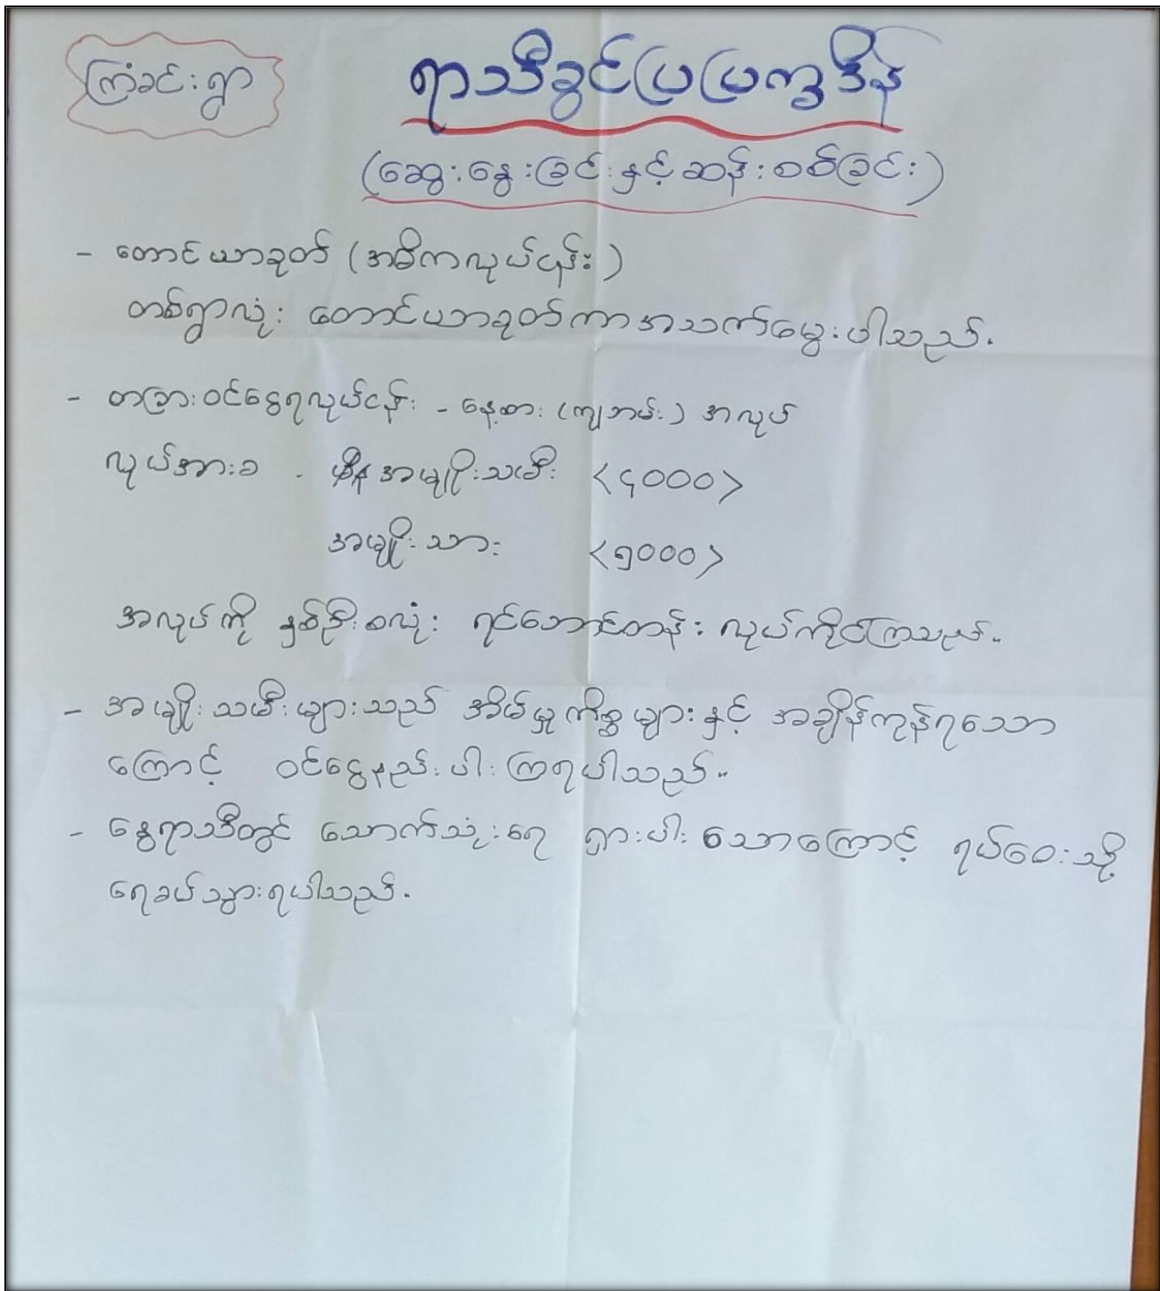 ကြံခင်းရွာ
ရာသီခွင်ပြပြက္ခဒိန်
(ဆွေးနွေးခြင်းနှင့်ဆန်းစစ်ခြင်း)
- တောင်ယာခုတ် (အဓိကလုပ်ငန်း)
တစ်ရွာလုံး တောင်ယာခုတ်ကာအသက်မွေးပါသည်.
- တခြားဝင်ငွေရလုပ်ငန်း - နေ့စား (ကျဘမ်း) အလုပ်
လုပ်အားခ - အမျိုးသမီး <၄၀၀၀>
အမျိုးသား <၅၀၀၀>
အလုပ်ကို နှစ်ဦးစလုံး ရင်ဘောင်တန်း လုပ်ကိုင်ကြသည်။
- အမျိုးသမီးများသည် အိမ်မှုကိစ္စများနှင့် အချိန်ကုန်ရသော
ကြောင့် ဝင်ငွေနည်းပါးကြရပါသည်။
- နွေရာသီတွင် သောက်သုံးရေ ရှားပါးသောကြောင့် ရပ်ဝေးသို့
ရေခပ်သွားရပါသည်.